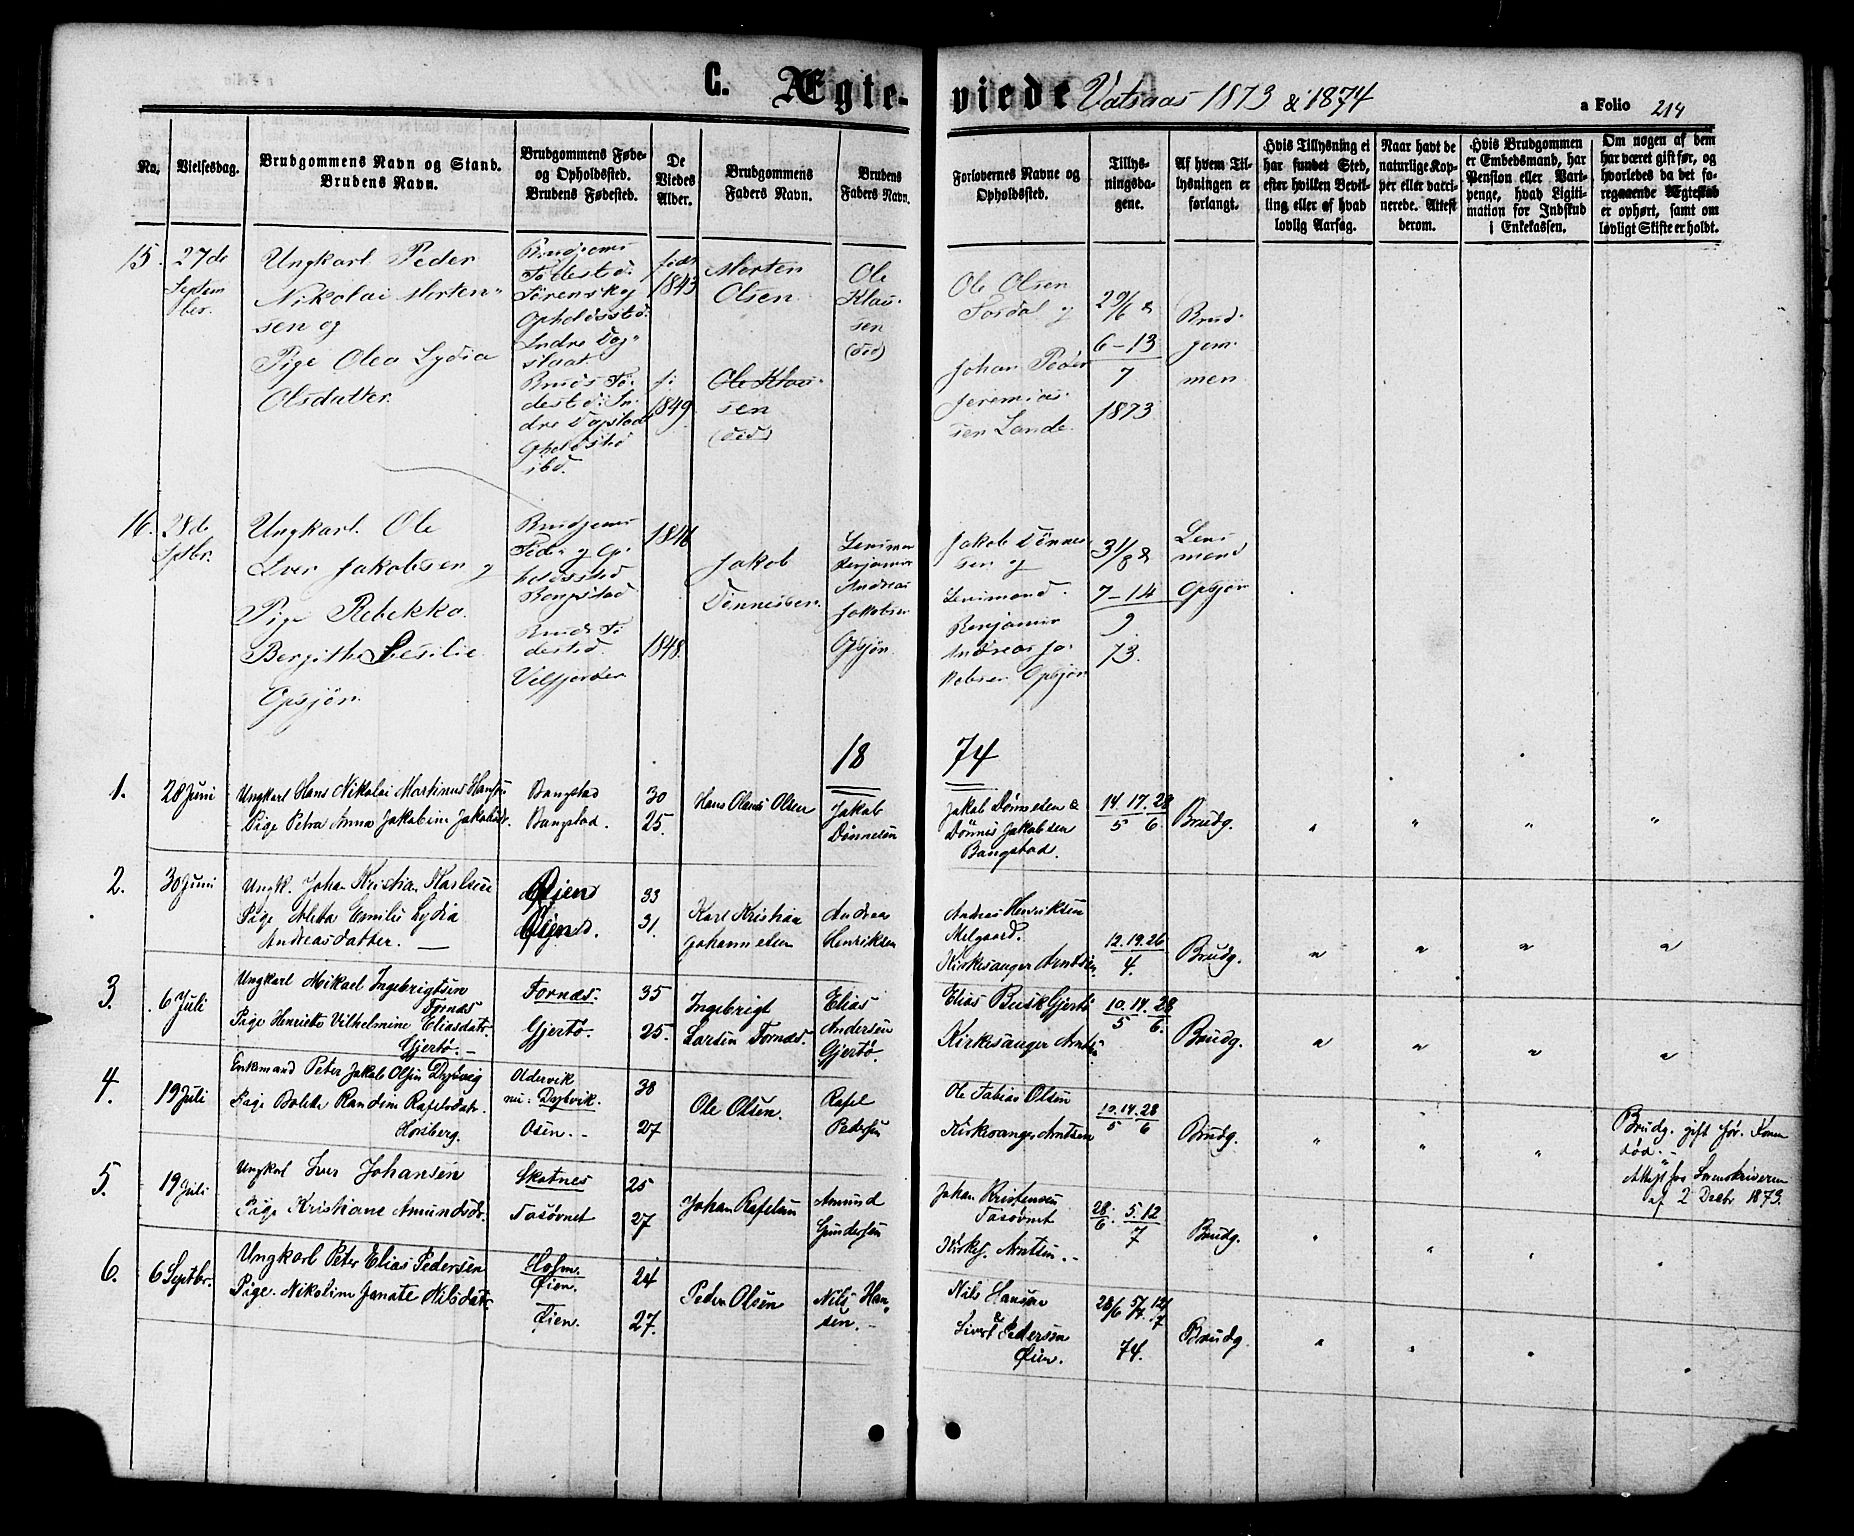 C. Ægteviede Vatsaas 1873 & 1874
a Folio 214
No.
Vielsesdag.
Brudgommens Navn og Stand.
Brudens Navn.
Brudgommens Føde-
og Opholdssted.
Brudens Fødested.
De
Viedes
Alder.
Brudgommens
Faders Navn.
Brudens
Faders Navn.
Forlovernes Navne og
Opholdssted.
Tillys-
ningsda-
gene.
Af hvem Til-
lysningen er
forlangt.
Hvis Tillysning ei
har fundet Sted,
efter hvilken Bevil-
ling eller af hvad
lovlig Aarsag.
Naar havt de
naturlige Kop-
per eller vacci-
nerede. Attest
derom.
Hvis Brudgommen
er Embedsmand, har
Pension eller Vart-
penge, hvad Legiti-
mation for Indskud
i Enkekassen.
Om nogen af dem
har været gift før, og
hvorledes da det fo-
regaaende Ægteskab
er ophørt, samt om
lovligt Skifte er holdt.
15.
27de
Septem
ber.
Ungkarl Peder
Nikolai Morten-
sen og
Pige Olea Lydia
Olsdatter.
Brudgoms
Fødested:
Opholdssted:
Indre
Bruds Fø-
dested: In-
dre
Opholdssted
ibd.
født
1843
f:
1849.
Morten
Olsen
Ole Klau-
sen
(død)
Ole
Klau-
sen
(død)
Ole Olsen
og
Johan Peder
Jeremias-
sen Lande.
29/6 &
6-13
7
1873
Brud-
gom-
men
16.
28de
Sptbr.
Ungkarl Ole
Iver Jakobsen og
Pige Rebekka
Bergitha Cesilie
Opsjøn.
Brudgoms
Føde- og Op-
holdssted
Bangstad
Bruds Fø-
dested:
Velfjorden
1846
1848.
Jakob
Dønnesen.
Benjamin
Andreas
Jakobsen
Opsjøn.
Jakob Dønne-
sen og
Benjamin
Andreas Ja-
kobsen Opsjøn
31/8 &
7-14
9
73.
Opsjøn
18 74
1.
28 Juni
Ungkarl Hans Nikolai Martinus Hansen
Pige Petra Anna Jakobine Jakobsdr.
Bangstad
Bangstad.
30
25.
Hans Olsen
Jakob
Dønnesen
Jakob Dønnesen &
Dønnes Jakobsen
Bangstad.
14. 17. 28
5 6
Brudg.
" " " "
2.
30 Juni
Ungk. Johan Kristian Karlsen
Pige Aleta Emilie Lydia
Andreasdatter. —
Øien
Øien.
33
31.
Karl Kristian
Johannesen
Andreas
Henriksen
Andreas Henriksen
Melgaard.
Kirkesanger Arntsen.
12. 19. 26
4.
Brudg.
" " " "
3.
6 Juli
Ungkarl Mikael Ingebrigtsen
Fornæs
Pige Henrietta Vilhelmine Eliasdatr.
Gjertø. —
Fornæs.
Gjertø.
35
25.
Ingebrigt
Larsen Fornæs.
Elias
Andersen
Gjertø.
Elias Busk Gjertø
Kirkesanger Arntsen
10. 14. 28
5 6.
Brudg.
" " " "
4.
19 Juli
Enkemand Peter Jakob Olsen Dybvig
Pige Bolette Randine Rafelsdatr.
Horsberg.
Oldervik
nu: Dybvik.
Osen. -
38
27
Ole Olsen.
Rafel
Pedersen
Ole Tobias Olsen
Kirkesanger Arntsen
10. 14. 28
5 6
Brudg.
" " "
Brudg. gift før. Konen
død. -
Attest fra Sorenskriveren
af 2 Decbr 1873.
5.
19 Juli
Ungkarl Iver Johansen
Pige Kristiane Amundsdr.
Skotnes
Tosøvnet
25
27
Johan Rafelsen
Amund
Gundersen
Johan Kristensen
Tosøvnet
Kirkes. Arntsen. -
28. 5. 12
6 7
Brudg.
" " " "
6.
6 Septbr.
Ungkarl Peter Elias Pedersen
Pige. Nikoline Janate Nilsdatr.
Holm.
Øien.
Øien.
24
27.
Peder Olsen
Nils Han-
sen. -
Nils Hansen
&
Sivert Pedersen
Øien.
28/6 5/7 12/7
74.
Brudg.
" " " "